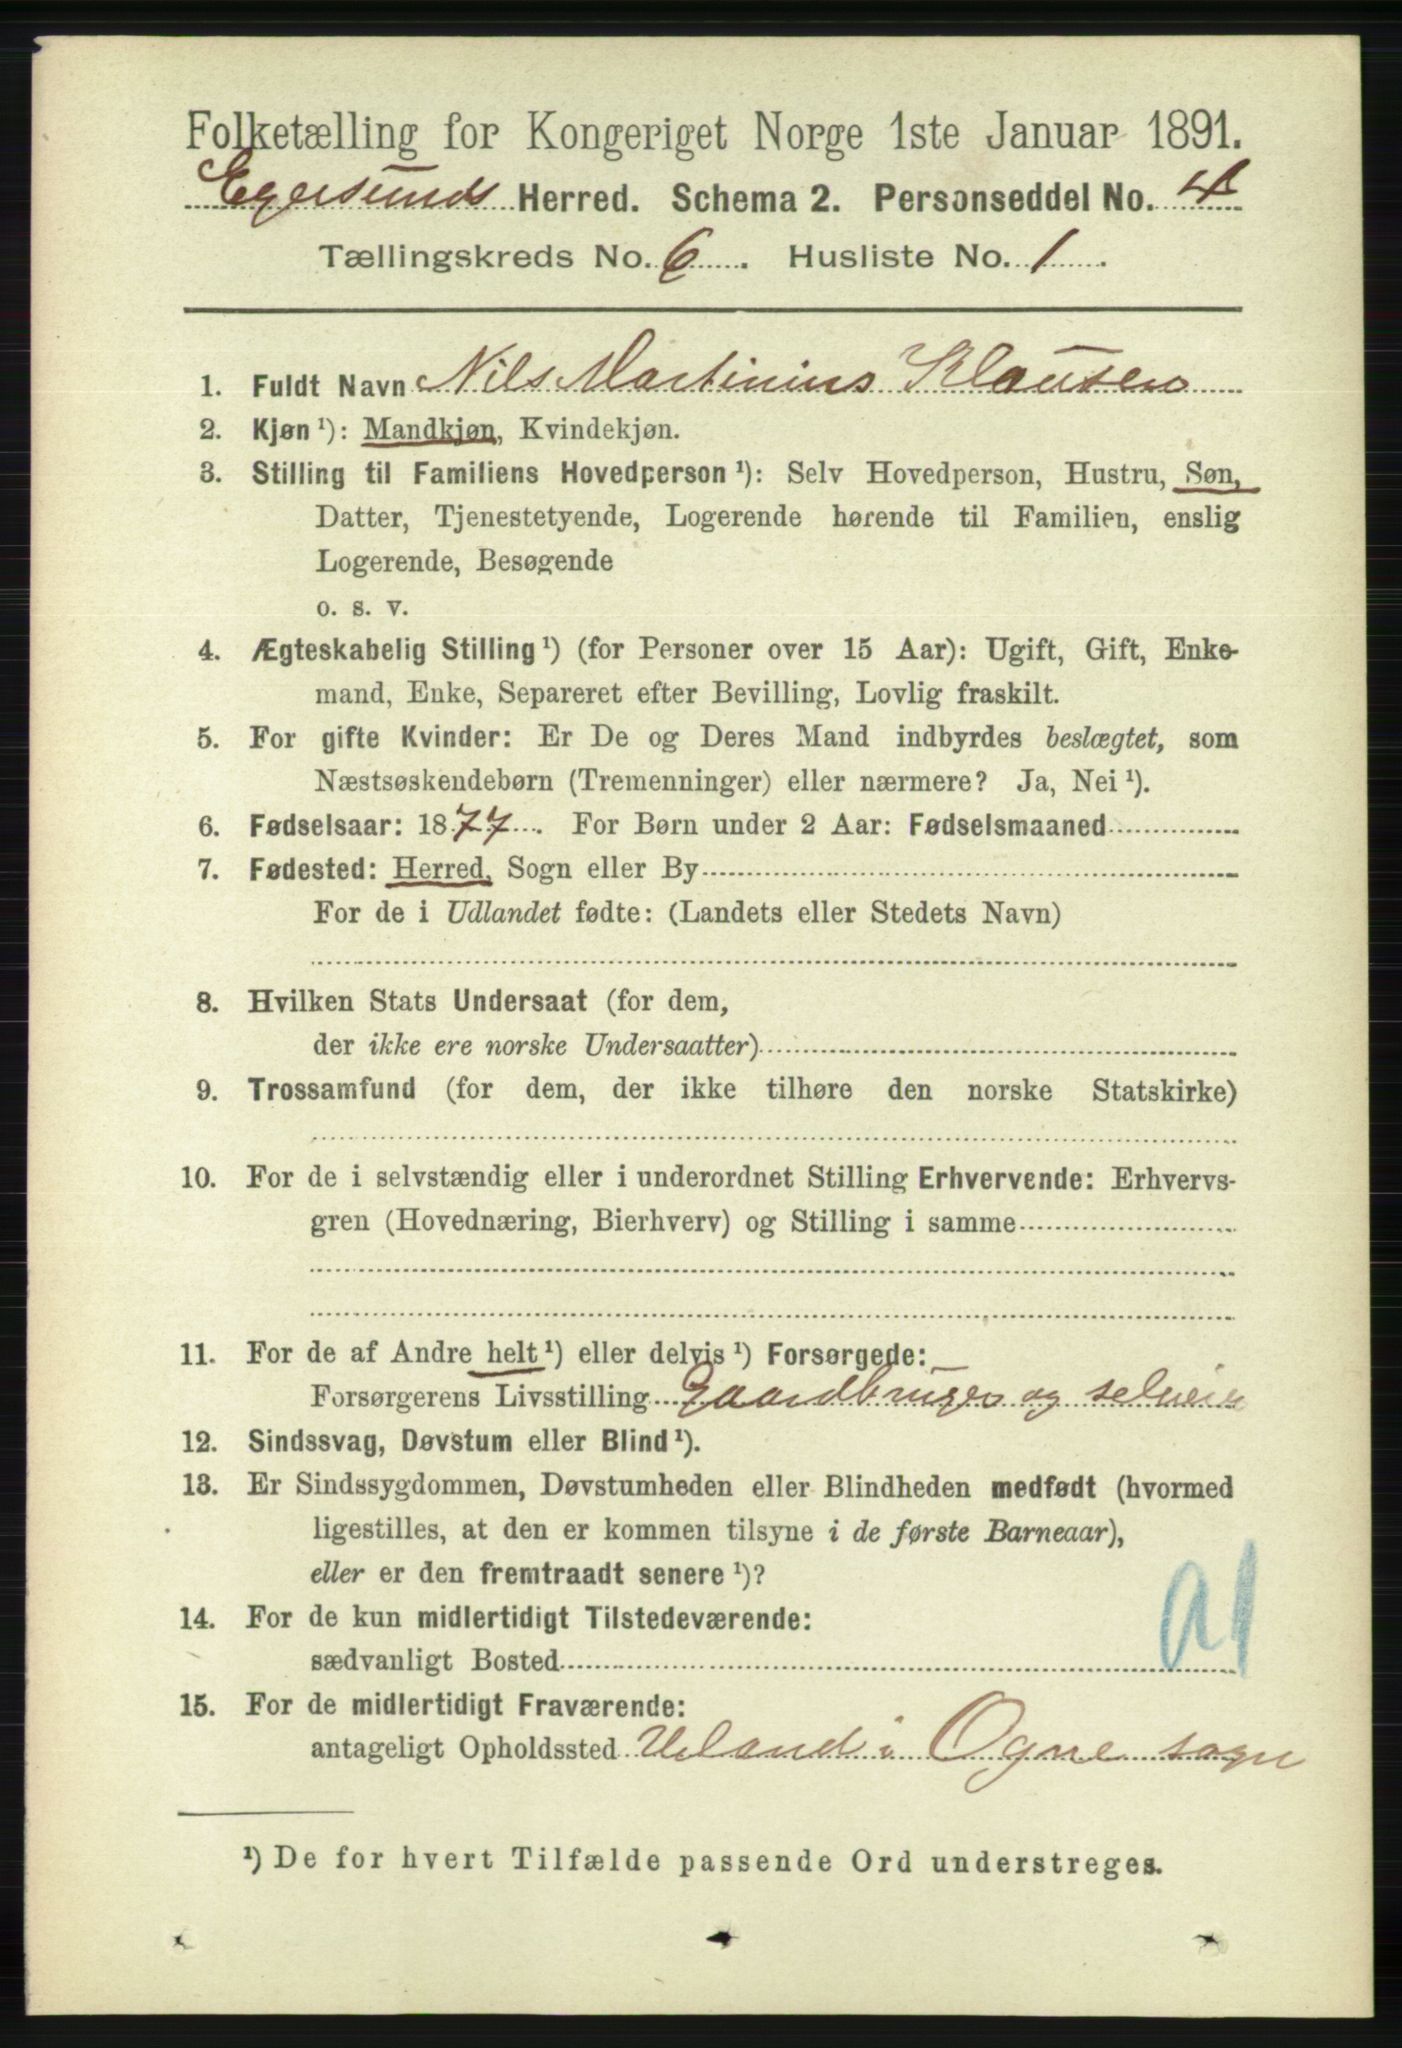 Folketælling for Kongeriget Norge 1ste Januar 1891.
Egersunds Herred. Schema 2. Personseddel No. 4
Tællingskreds No. 6. Husliste No. 1.
1. Fuldt Navn Nils Martinius Klausen
2. Kjøn ¹): Mandkjøn, Kvindekjøn.
3. Stilling til Familiens Hovedperson ¹): Selv Hovedperson, Hustru, Søn,
Datter, Tjenestetyende, Logerende hørende til Familien, enslig
Logerende, Besøgende
o. s. v.
4. Ægteskabelig Stilling ¹) (for Personer over 15 Aar): Ugift, Gift, Enke-
mand, Enke, Separeret efter Bevilling, Lovlig fraskilt.
5. For gifte Kvinder: Er De og Deres Mand indbyrdes beslægtet, som
Næstsøskendebørn (Tremenninger) eller nærmere? Ja, Nei ¹).
6. Fødselsaar: 1877. For Børn under 2 Aar: Fødselsmaaned
7. Fødested: Herred, Sogn eller By
For de i Udlandet fødte: (Landets eller Stedets Navn)
8. Hvilken Stats Undersaat (for dem,
der ikke ere norske Undersaatter)
9. Trossamfund (for dem, der ikke tilhøre den norske Statskirke)
10. For de i selvstændig eller i underordnet Stilling Erhvervende: Erhvervs-
gren (Hovednæring, Bierhverv) og Stilling i samme
11. For de af Andre helt ¹) eller delvis ¹) Forsørgede:
Forsørgerens Livsstilling Gaardbruger og selveier
12. Sindssvag, Døvstum eller Blind ¹).
13. Er Sindssygdommen, Døvstumheden eller Blindheden medfødt (hvormed
ligestilles, at den er kommen tilsyne i de første Barneaar),
eller er den fremtraadt senere ¹)?
14. For de kun midlertidigt Tilstedeværende:
sædvanligt Bosted
15. For de midlertidigt Fraværende:
antageligt Opholdssted Ueland i Ogne sogn
¹) De for hvert Tilfælde passende Ord understreges.